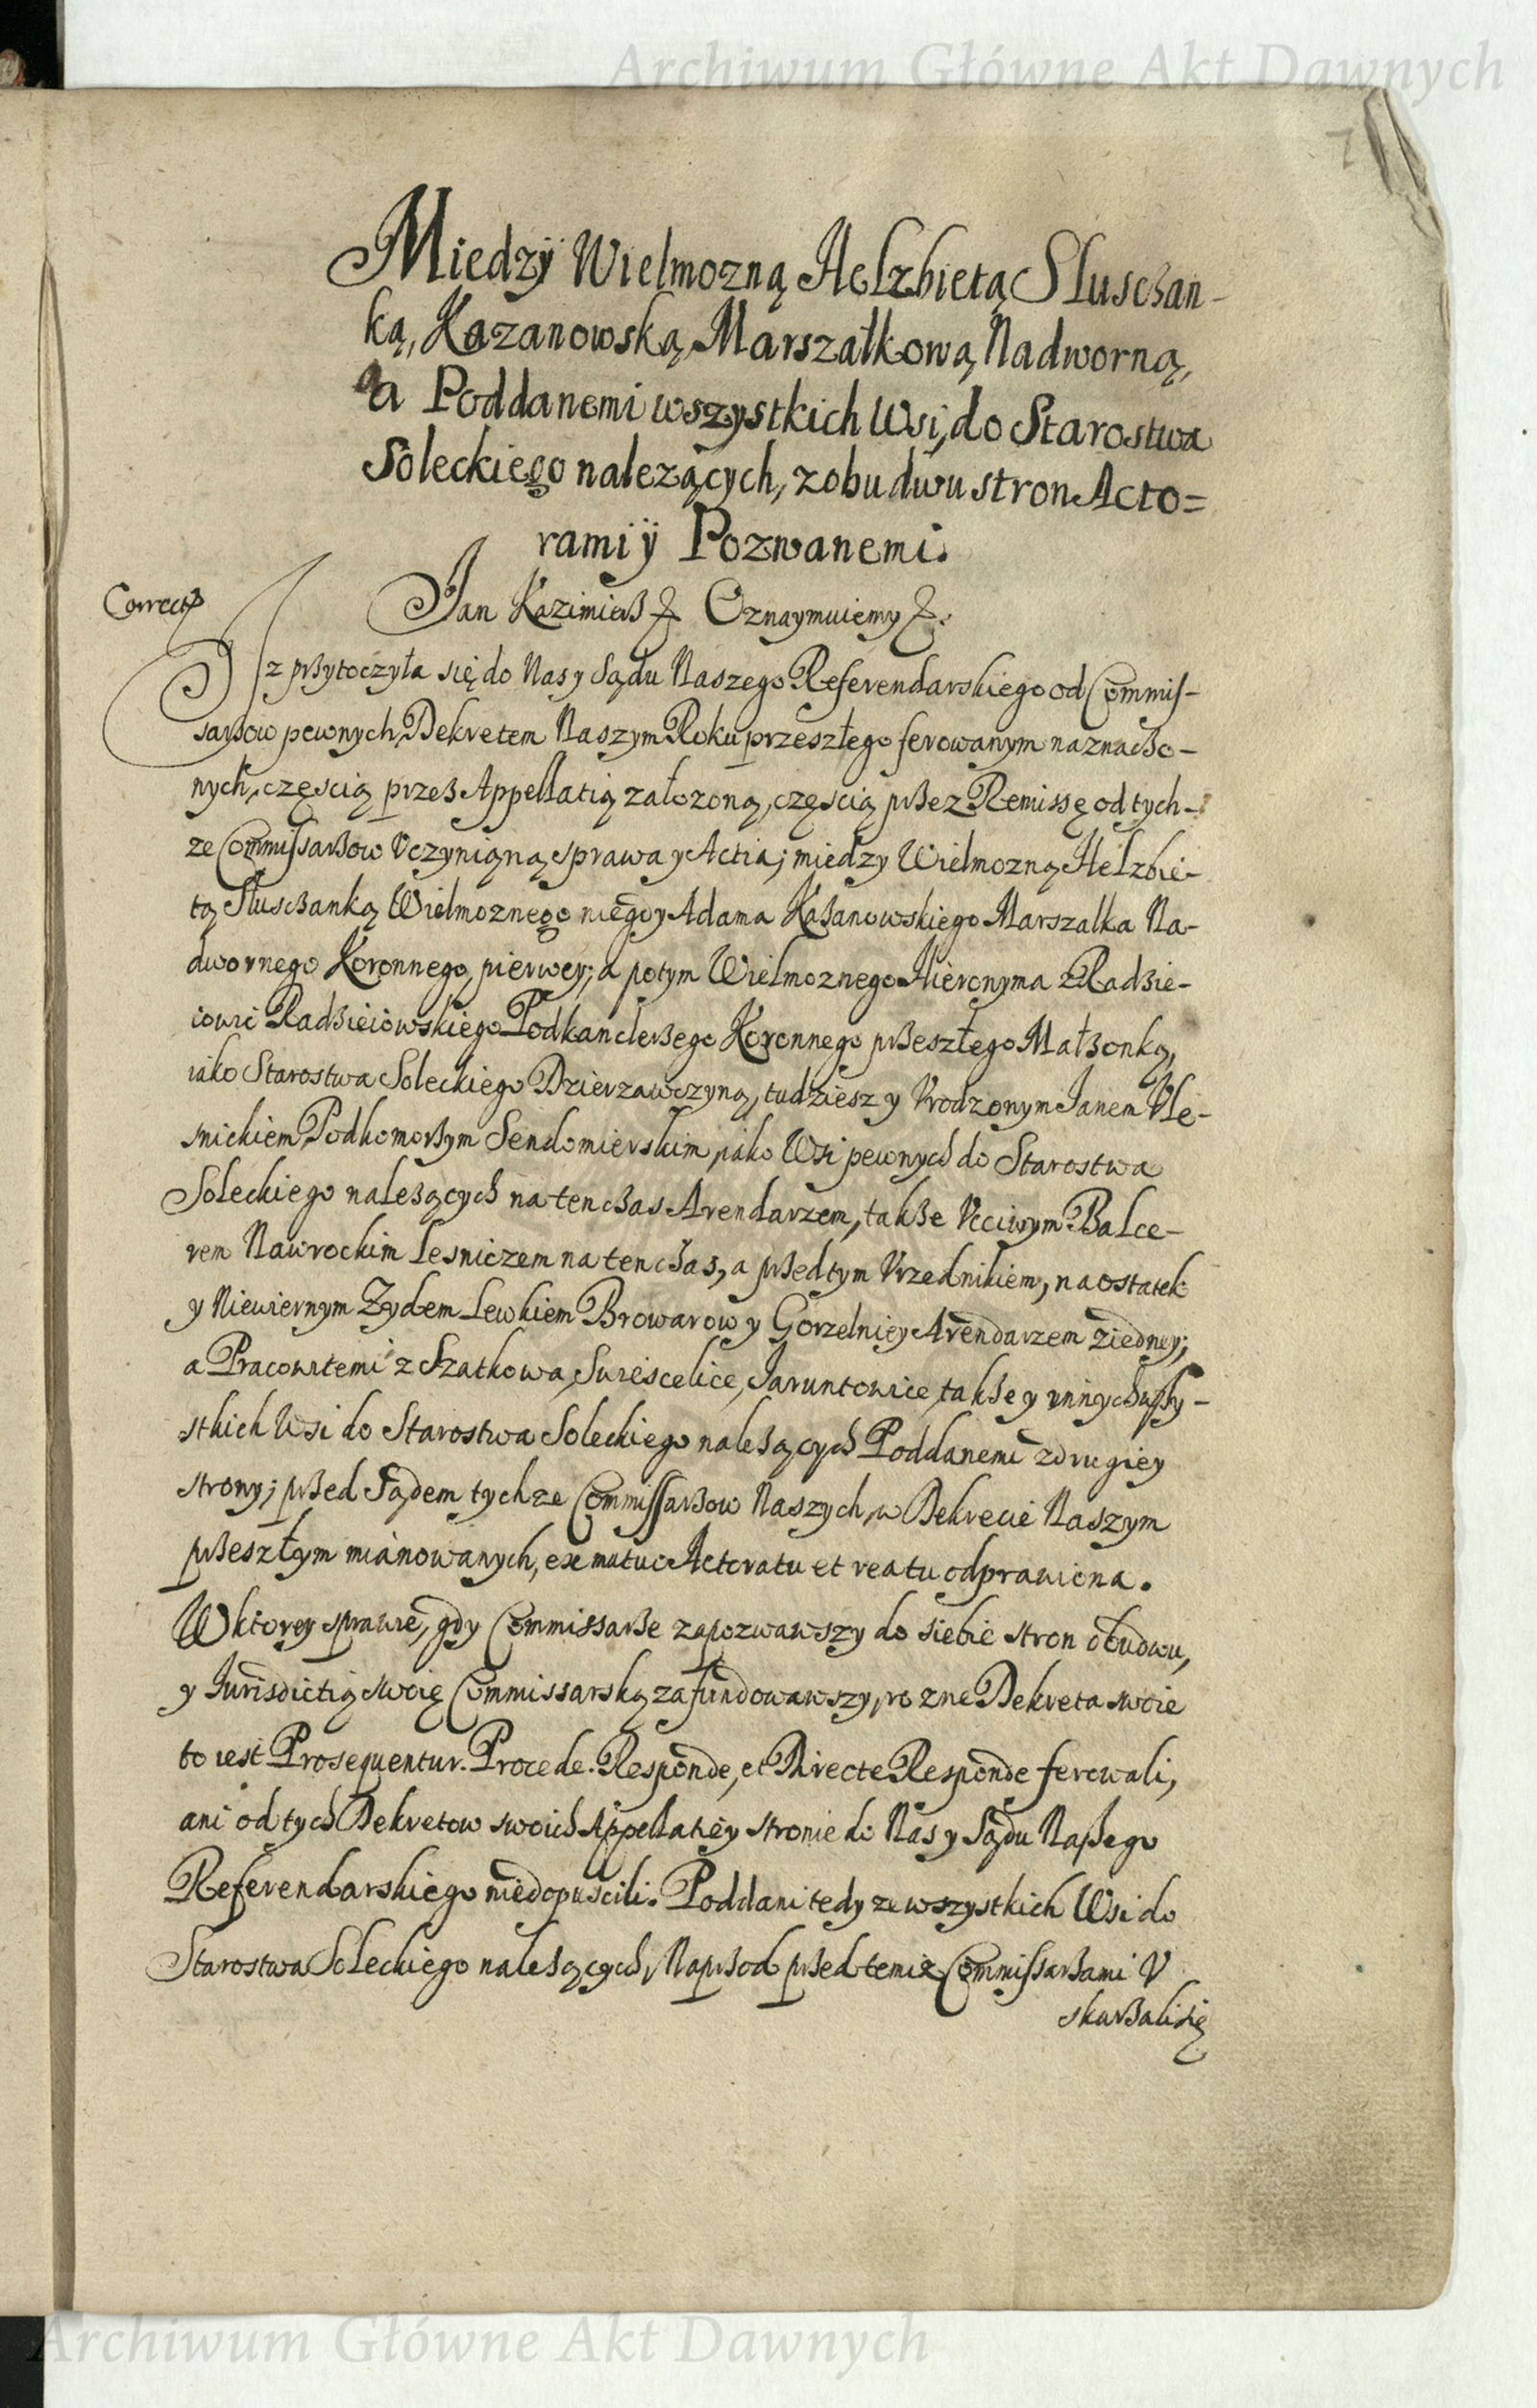 Archiwum Główne Akt Dawnych
7
Miedzÿ Wielmozną Helzbietą Sluschan-
ką, Kazanowską Marszałkową Nadworną,
a Poddanemi wszystkich Wsi, do Starostwa
Soleckiego nalezących, z obu dwu stron Acto=
rami ÿ Pozwanemi.
Correct
Jan Kazimierz Oznaymuiemy
Iz przytoczyła się do Nas y Sądu Naszego Referendarskiego od Commis-
sarzow pewnych, Dekretem Naszym Roku przeszłego ferowanym naznaczo-
nych, częscią przez Appellatią załozoną, częscią przez Remissę od tych-
ze Commissarzow Vczynioną sprawa y Actia; miedzy Wielmozną Helzbie-
tą Sluszczanką Wielmoznego niegdy Adama Kazanowskiego Marszalka Na-
dwornego Koronnego, pierwey; a potym Wielmoznego Hieronyma z Radzie-
iowic Radzieiowskiego Podkanclerzego Koronnego przeszłego Małzonką,
iako Starostwa Soleckiego Dzierzawczyną, tudziesz y Vrodzonym Janem Ole-
snickiem Podkomorzym Sendomierskim, iako Wsi pewnych do Starostwa
Soleckiego nalezących na ten czas Arendarzem, takze Vcciwym Balce-
rem Nawrockim Lesniczem na ten czas, a przedtym Vrzednikiem, na ostatek
y Niewiernym Zydem Lewkiem Browarow y Gorzelniey Arendarzem z iedney;
a Pracowitemi z Szatkowa, Swiescelice, Jaruntowice, takze y innych wszy-
stkich Wsi do Starostwa Soleckiego nalezących Poddanemi z drugiey
strony; przed Sądem tychze Commissarzow Naszych, w Dekrecie Naszym
przeszłym mianowanych, ex mutuo Actoratu et reatu odprawiona.
W ktorey sprawie, gdy Commissarze zapozwawszy do siebie stron obudwu,
y Jurisdictią swoię Commissarską zafundowawszy, rozne Dekreta swoie
to iest Prosequentur. Procede. Responde, et Directe Responde ferowali,
ani od tych Dekretow swoich Appellatiey stronie do Nas y Sądu Naszego
Referendarskiego niedopuscili. Poddani tedy ze wszystkich Wsi do
Starostwa Soleckiego nalezących, Naprzod przed temiz Commissarzami V
skarzali się
Archiwum Główne Akt Dawnych